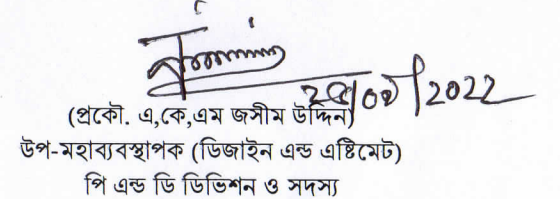 (প্রকৌ. এ,কে,এম জসীম উদ্দিন)
উপ-মহাব্যবস্থাপক (ডিজাইন এন্ড এষ্টিমেট)
পি এন্ড ডি ডিভিশন ও সদস্য